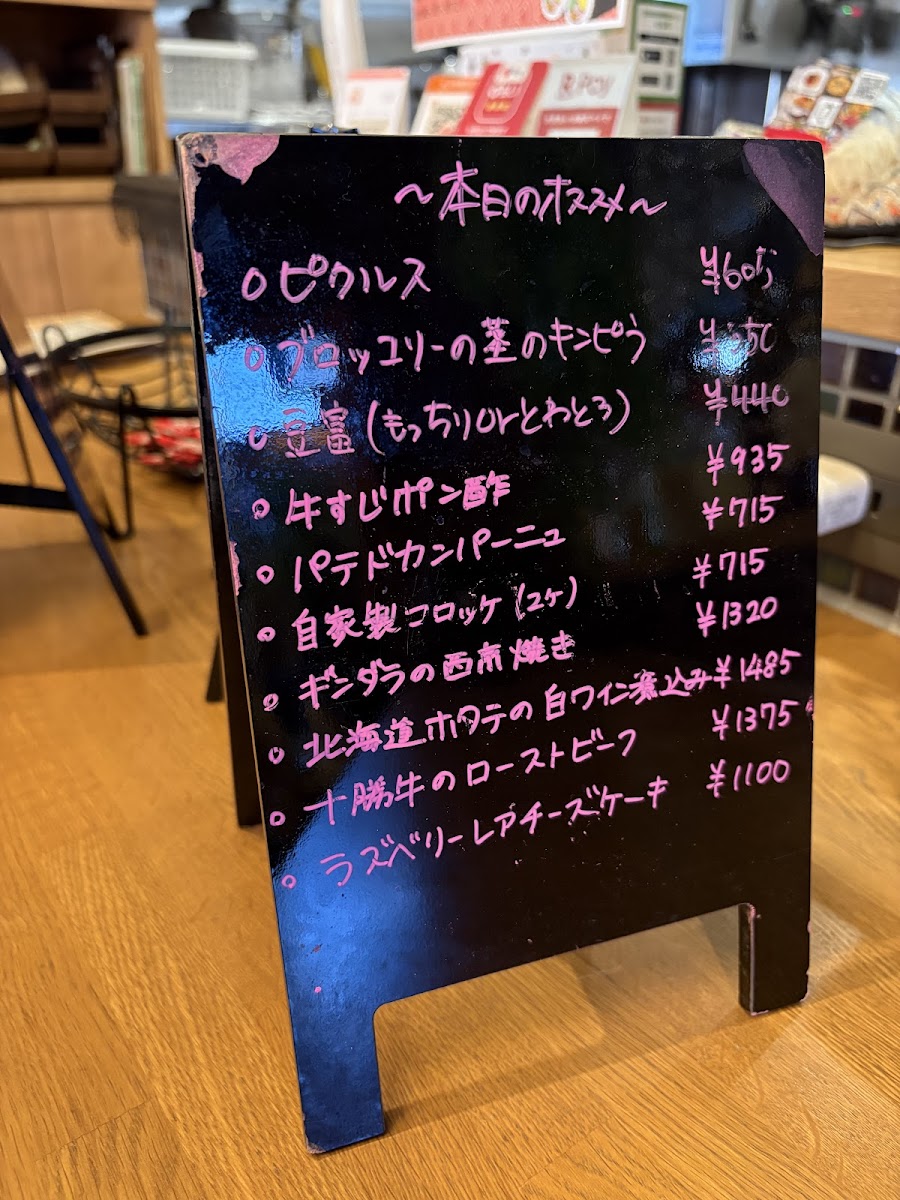 R Pay
〜本日のオススメ〜
○ピクルス ¥605
○ブロッコリーの茎のキンピラ
○豆富(もっちりorとわとろ) ¥440
○牛すじポン酢 ¥935
○パテドカンパーニュ ¥715
○自家製コロッケ(2ケ) ¥715
○ギンダラの西京焼き ¥1320
○北海道ホタテの白ワイン煮込み ¥1485
○十勝牛のローストビーフ ¥1375
○ラズベリーレアチーズケーキ ¥1100